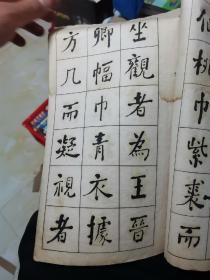 仙桃巾紫裘而
坐觀者為王晉
卿幅巾青衣據
方几而凝視者